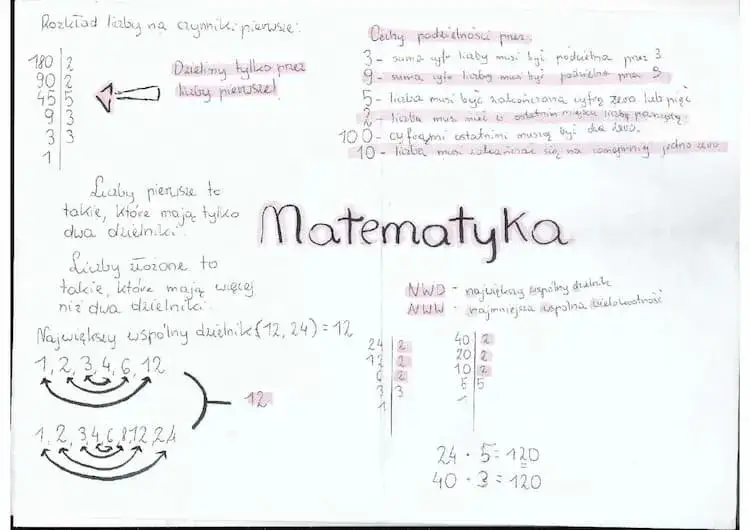 Rozkład liczby na czynniki pierwsze:
180 | 2
90 | 2
45 | 5
9 | 3
3 | 3
1
Dzielimy tylko przez
liczby pierwsze!
Liczby pierwsze to
takie, które mają tylko
dwa dzielniki.
Liczby złożone to
takie, które mają więcej
niż dwa dzielniki.
Największy wspólny dzielnik (12, 24) = 12
1, 2, 3, 4, 6, 12
1, 2, 3, 4, 6, 8, 12, 24
12
Matematyka
Cechy podzielności przez:
3 - suma cyfr liczby musi być podzielna przez 3
9 - suma cyfr liczby musi być podzielna przez 9
5 - liczba musi być zakończona cyfrą zero lub pięć
2 - liczba musi mieć w ostatnim miejscu liczbę parzystą.
100 - cyframi ostatnimi muszą być dwa zera.
10 - liczba musi zakańczać się na conajmniej jedno zero
NWD - największy wspólny dzielnik
NWW - najmniejsza wspólna wielokrotność
24 | 2
12 | 2
6 | 2
3 | 3
1
40 | 2
20 | 2
10 | 2
5 | 5
1
24 · 5 = 120
40 · 3 = 120